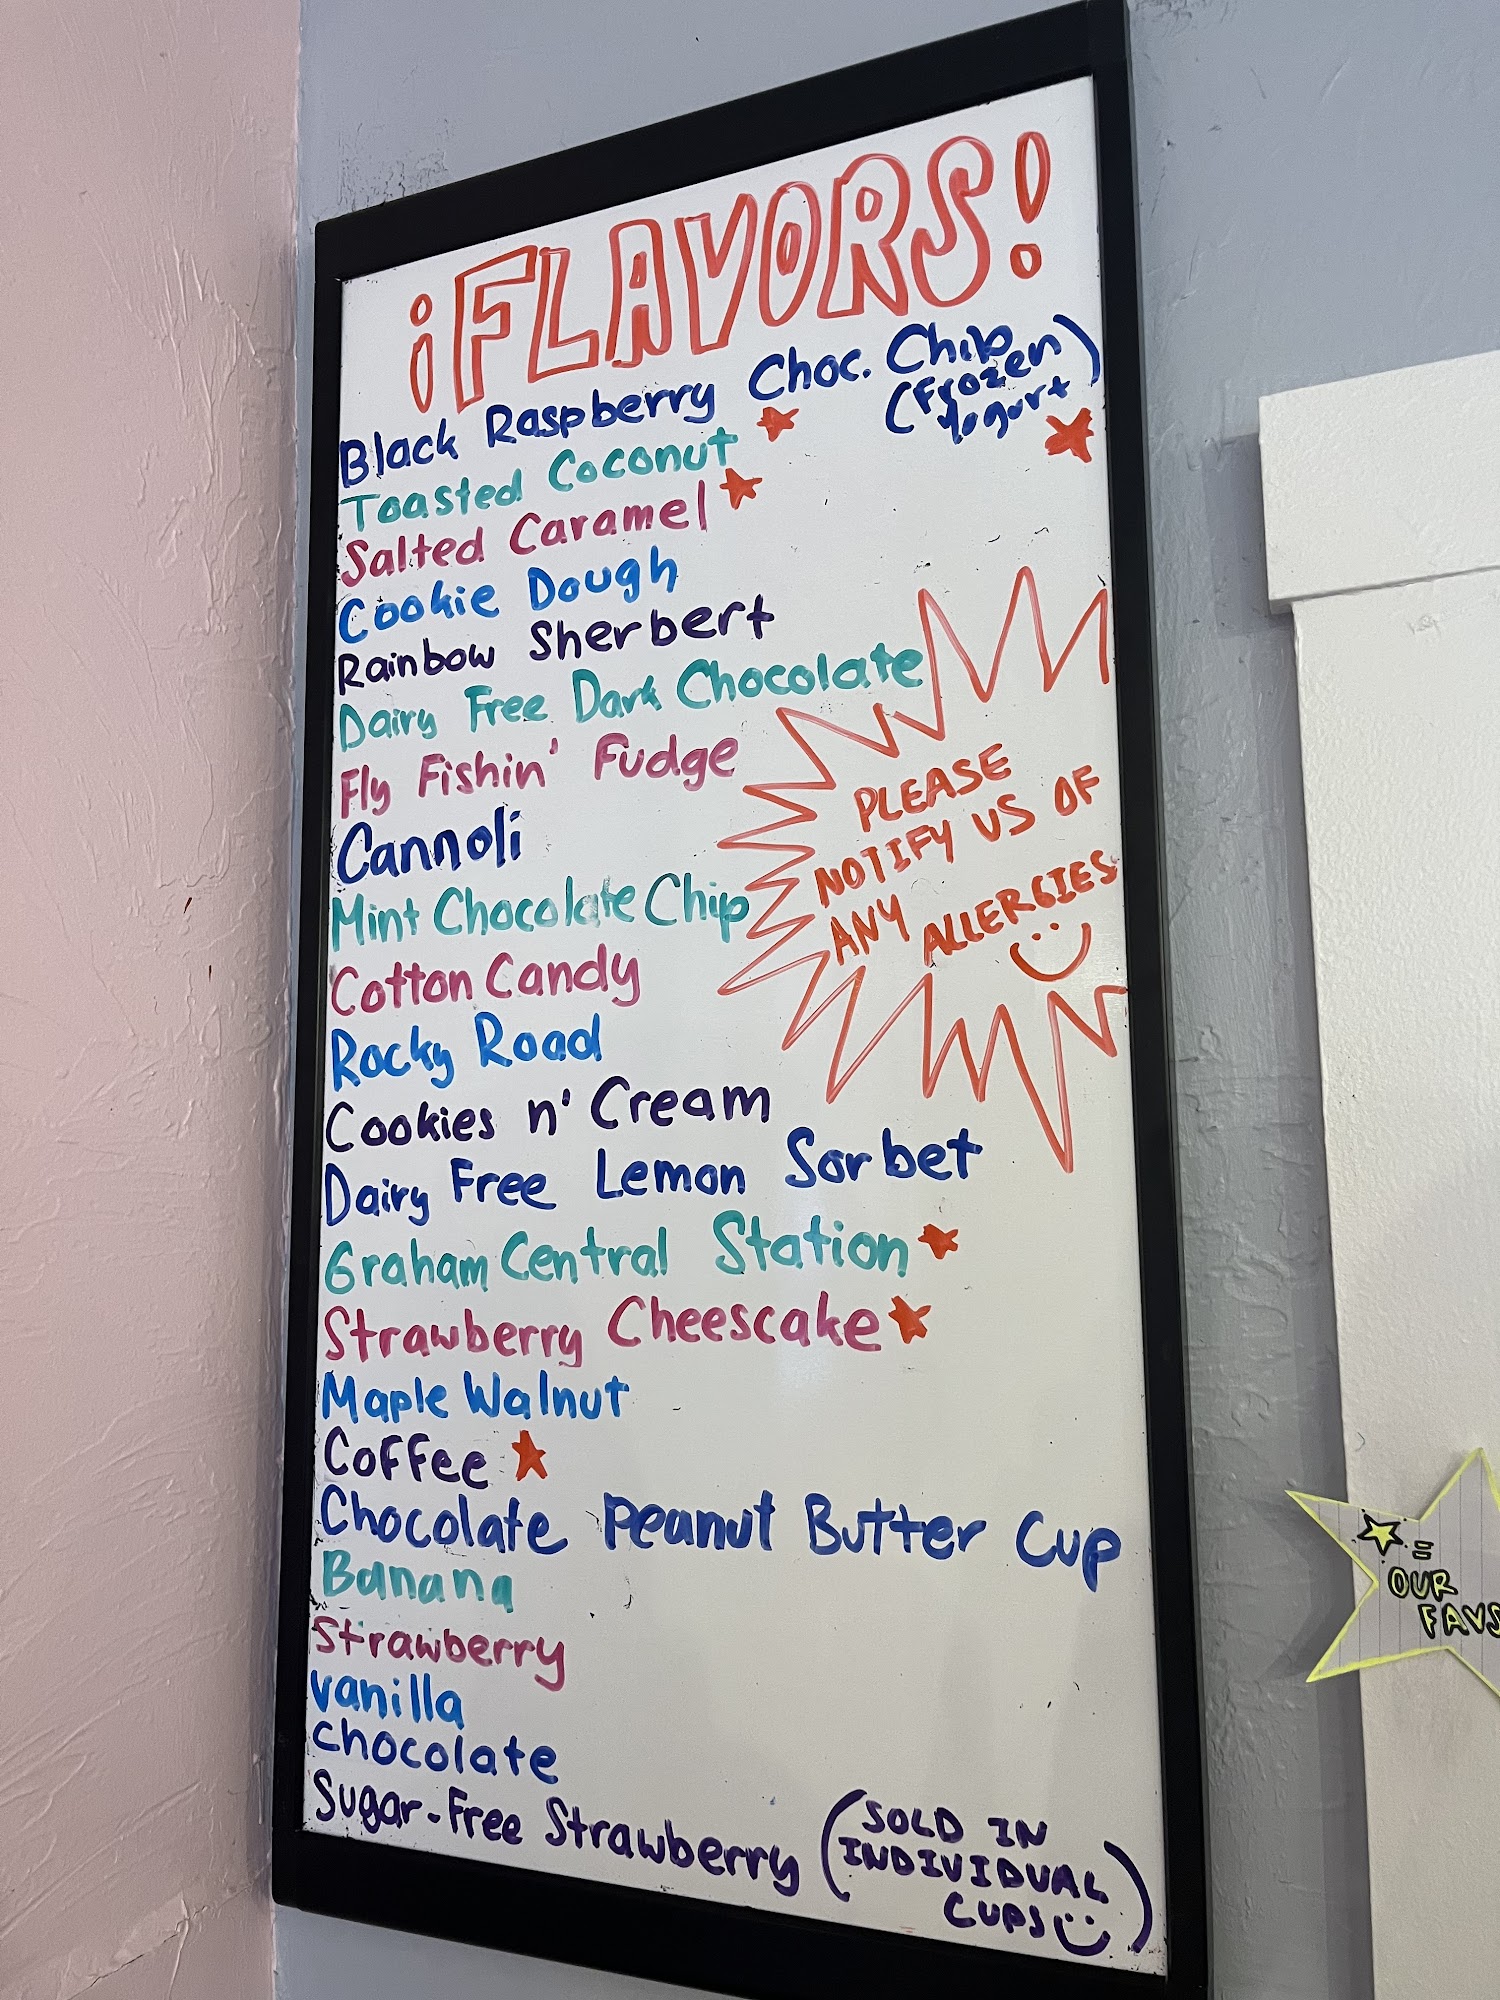 ¡FLAVORS!
Black Raspberry Choc. Chip
(Frozen
Yogurt)
Toasted Coconut
Salted Caramel
Cookie Dough
Rainbow Sherbert
Dairy Free Dark Chocolate
Fly Fishin' Fudge
Cannoli
Mint Chocolate Chip
Cotton Candy
Rocky Road
Cookies n' Cream
Dairy Free Lemon Sorbet
Graham Central Station
Strawberry Cheescake
Maple Walnut
Coffee
Chocolate Peanut Butter Cup
Banana
Strawberry
vanilla
chocolate
Sugar-Free Strawberry
(SOLD IN
INDIVIDUAL
CUPS)
PLEASE
NOTIFY US OF
ANY ALLERGIES
=
OUR
FAVS